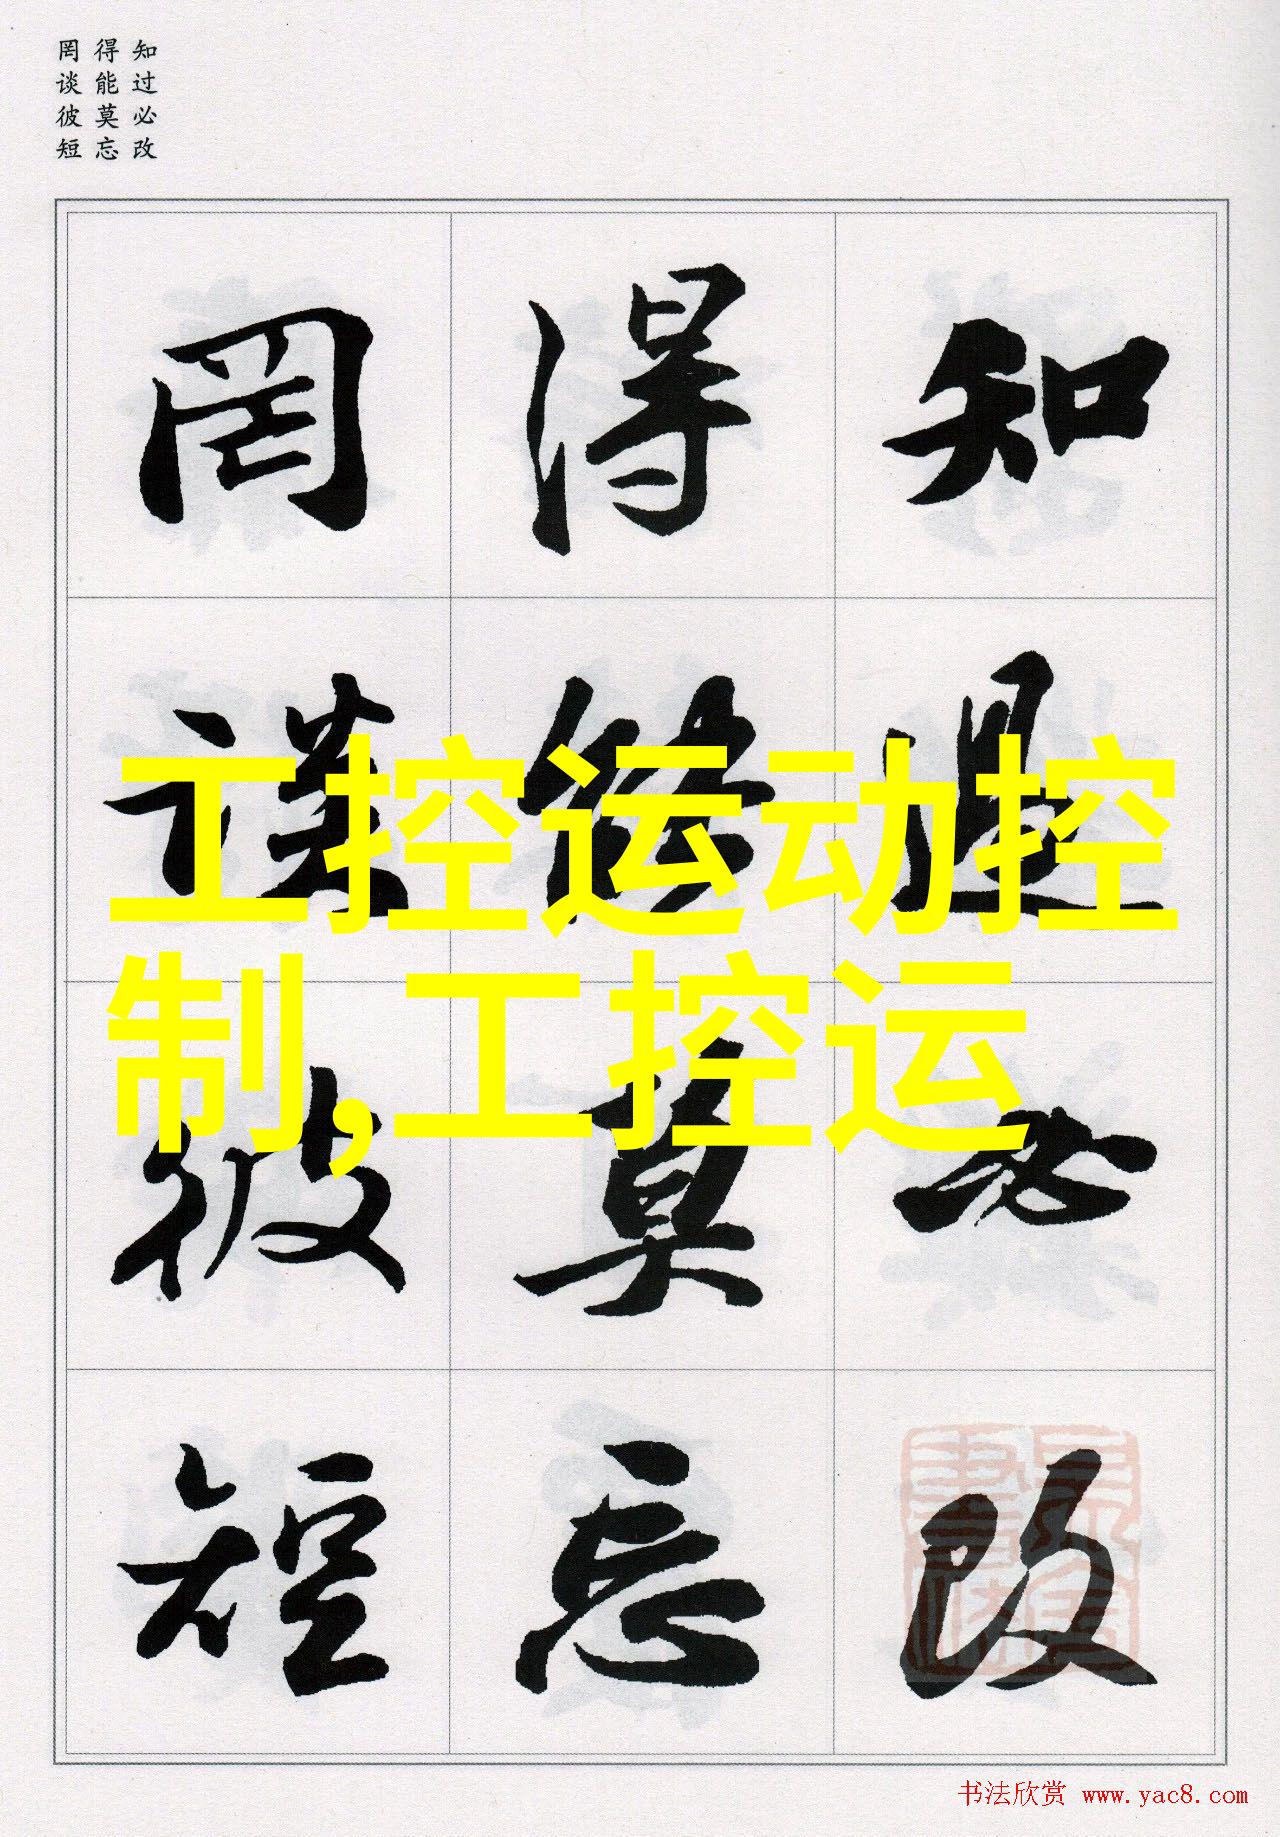 知过必改
得能莫忘
罔谈彼短
知过必改
得能莫忘
罔谈彼短
工控运动控
制,工控运
书法欣赏 www.yac8.com